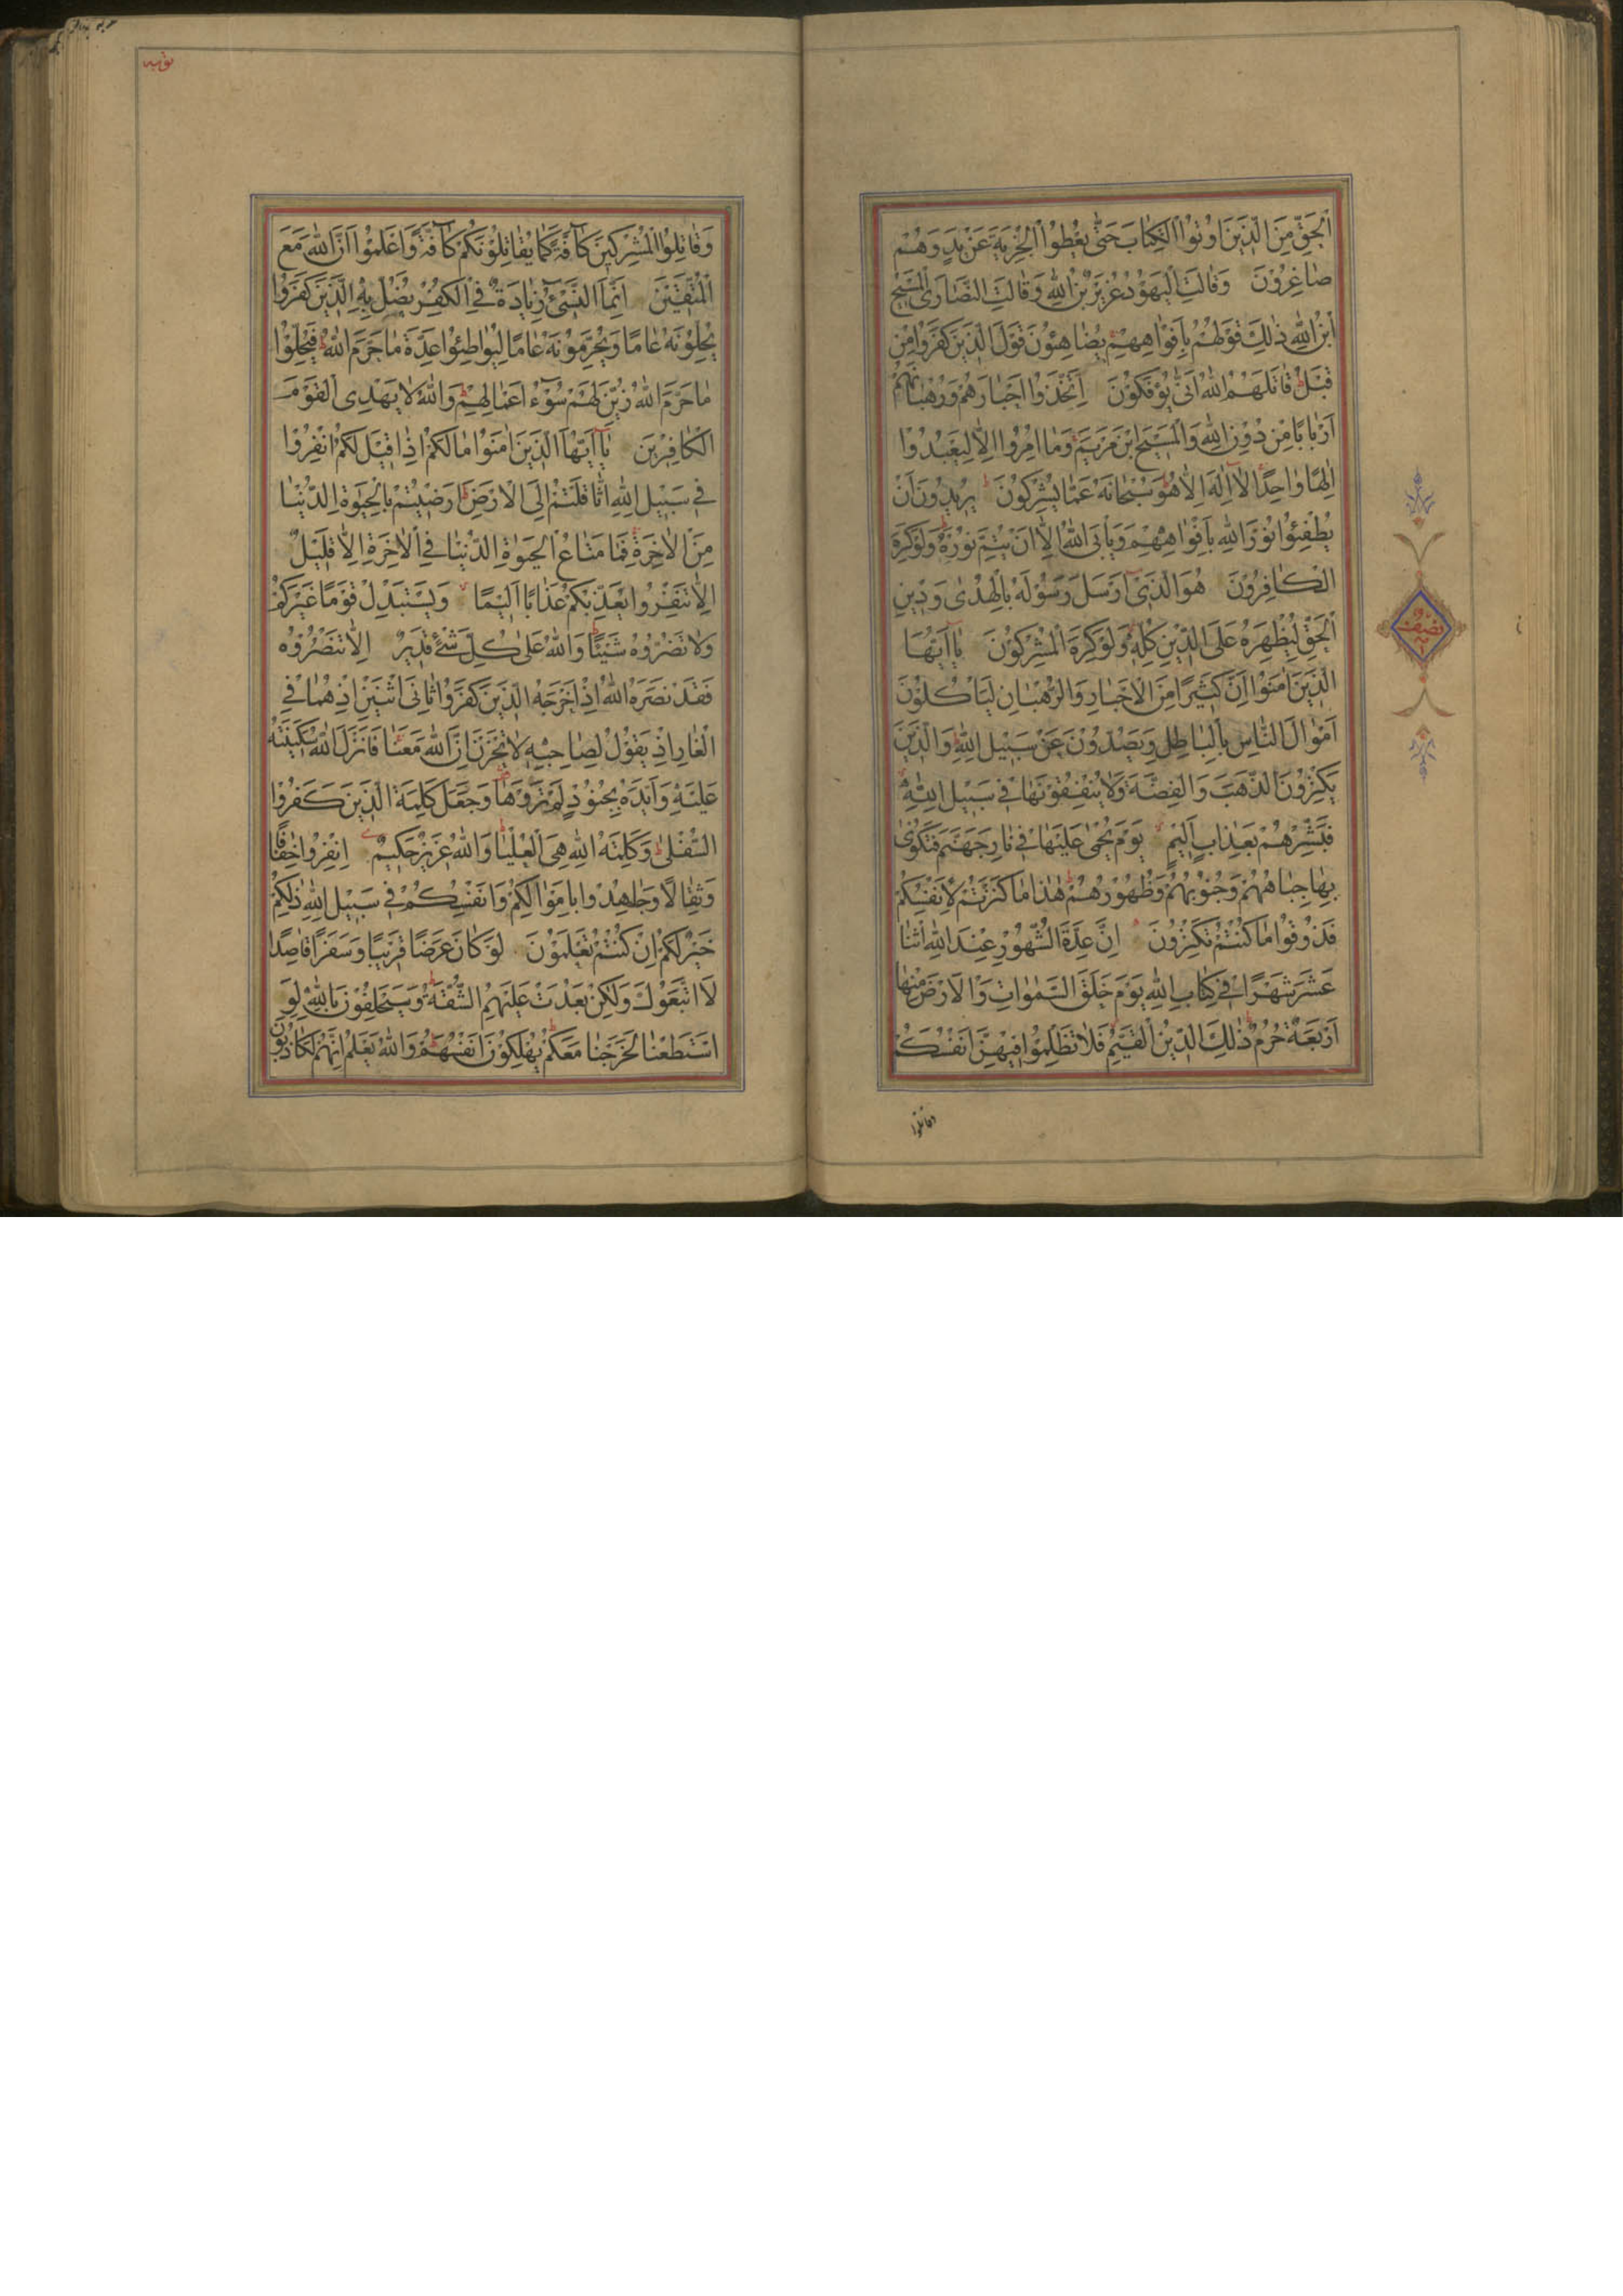 الْحَقِّ مِنَ الَّذِينَ اُوتُوا الْكِتَابَ حَتَّى يُعْطُوا الْجِزْيَةَ عَنْ يَدٍ وَهُمْ
صَاغِرُونَ وَقَالَتِ الْيَهُودُ عُزَيْرٌ بْنُ اللّٰهِ وَقَالَتِ النَّصَارَى الْمَسِيحُ
ابْنُ اللّٰهِ ذٰلِكَ قَوْلُهُمْ بِاَفْوَاهِهِمْ يُضَاهِئُونَ قَوْلَ الَّذِينَ كَفَرُوا مِنْ
قَبْلُ قَاتَلَهُمُ اللّٰهُ اَنَّى يُؤْفَكُونَ اِتَّخَذُوا اَحْبَارَهُمْ وَرُهْبَانَهُمْ
اَرْبَابًا مِنْ دُونِ اللّٰهِ وَالْمَسِيحَ ابْنَ مَرْيَمَ وَمَا اُمِرُوا اِلَّا لِيَعْبُدُوا
اِلٰهًا وَاحِدًا لَا اِلٰهَ اِلَّا هُوَ سُبْحَانَهُ عَمَّا يُشْرِكُونَ يُرِيدُونَ اَنْ
يُطْفِئُوا نُورَ اللّٰهِ بِاَفْوَاهِهِمْ وَيَأْبَى اللّٰهُ اِلَّا اَنْ يُتِمَّ نُورَهُ وَلَوْ كَرِهَ
الْكَافِرُونَ هُوَ الَّذِي اَرْسَلَ رَسُولَهُ بِالْهُدٰى وَدِينِ
الْحَقِّ لِيُظْهِرَهُ عَلَى الدِّينِ كُلِّهِ وَلَوْ كَرِهَ الْمُشْرِكُونَ يَا اَيُّهَا
الَّذِينَ اٰمَنُوا اِنَّ كَثِيرًا مِنَ الْاَحْبَارِ وَالرُّهْبَانِ لَيَأْكُلُونَ
اَمْوَالَ النَّاسِ بِالْبَاطِلِ وَيَصُدُّونَ عَنْ سَبِيلِ اللّٰهِ وَالَّذِينَ
يَكْنِزُونَ الذَّهَبَ وَالْفِضَّةَ وَلَا يُنْفِقُونَهَا فِي سَبِيلِ اللّٰهِ
فَبَشِّرْهُمْ بِعَذَابٍ اَلِيمٍ يَوْمَ يُحْمٰى عَلَيْهَا فِي نَارِ جَهَنَّمَ فَتُكْوٰى
بِهَا جِبَاهُهُمْ وَجُنُوبُهُمْ وَظُهُورُهُمْ هٰذَا مَا كَنَزْتُمْ لِاَنْفُسِكُمْ
فَذُوقُوا مَا كُنْتُمْ تَكْنِزُونَ اِنَّ عِدَّةَ الشُّهُورِ عِنْدَ اللّٰهِ اثْنَا
عَشَرَ شَهْرًا فِي كِتَابِ اللّٰهِ يَوْمَ خَلَقَ السَّمٰوَاتِ وَالْاَرْضَ مِنْهَا
اَرْبَعَةٌ حُرُمٌ ذٰلِكَ الدِّينُ الْقَيِّمُ فَلَا تَظْلِمُوا فِيهِنَّ اَنْفُسَكُمْ
وقاتلوا
نصف
وَقَاتِلُوا الْمُشْرِكِينَ كَافَّةً كَمَا يُقَاتِلُونَكُمْ كَافَّةً وَاعْلَمُوا اَنَّ اللّٰهَ مَعَ
الْمُتَّقِينَ اِنَّمَا النَّسِيءُ زِيَادَةٌ فِي الْكُفْرِ يُضَلُّ بِهِ الَّذِينَ كَفَرُوا
يُحِلُّونَهُ عَامًا وَيُحَرِّمُونَهُ عَامًا لِيُوَاطِئُوا عِدَّةَ مَا حَرَّمَ اللّٰهُ فَيُحِلُّوا
مَا حَرَّمَ اللّٰهُ زُيِّنَ لَهُمْ سُوءُ اَعْمَالِهِمْ وَاللّٰهُ لَا يَهْدِي الْقَوْمَ
الْكَافِرِينَ يَا اَيُّهَا الَّذِينَ اٰمَنُوا مَا لَكُمْ اِذَا قِيلَ لَكُمُ انْفِرُوا
فِي سَبِيلِ اللّٰهِ اثَّاقَلْتُمْ اِلَى الْاَرْضِ اَرَضِيتُمْ بِالْحَيٰوةِ الدُّنْيَا
مِنَ الْاٰخِرَةِ فَمَا مَتَاعُ الْحَيٰوةِ الدُّنْيَا فِي الْاٰخِرَةِ اِلَّا قَلِيلٌ
اِلَّا تَنْفِرُوا يُعَذِّبْكُمْ عَذَابًا اَلِيمًا وَيَسْتَبْدِلْ قَوْمًا غَيْرَكُمْ
وَلَا تَضُرُّوهُ شَيْئًا وَاللّٰهُ عَلٰى كُلِّ شَيْءٍ قَدِيرٌ اِلَّا تَنْصُرُوهُ
فَقَدْ نَصَرَهُ اللّٰهُ اِذْ اَخْرَجَهُ الَّذِينَ كَفَرُوا ثَانِيَ اثْنَيْنِ اِذْ هُمَا فِي
الْغَارِ اِذْ يَقُولُ لِصَاحِبِهِ لَا تَحْزَنْ اِنَّ اللّٰهَ مَعَنَا فَاَنْزَلَ اللّٰهُ سَكِينَتَهُ
عَلَيْهِ وَاَيَّدَهُ بِجُنُودٍ لَمْ تَرَوْهَا وَجَعَلَ كَلِمَةَ الَّذِينَ كَفَرُوا
السُّفْلٰى وَكَلِمَةُ اللّٰهِ هِيَ الْعُلْيَا وَاللّٰهُ عَزِيزٌ حَكِيمٌ اِنْفِرُوا خِفَافًا
وَثِقَالًا وَجَاهِدُوا بِاَمْوَالِكُمْ وَاَنْفُسِكُمْ فِي سَبِيلِ اللّٰهِ ذٰلِكُمْ
خَيْرٌ لَكُمْ اِنْ كُنْتُمْ تَعْلَمُونَ لَوْ كَانَ عَرَضًا قَرِيبًا وَسَفَرًا قَاصِدًا
لَاتَّبَعُوكَ وَلٰكِنْ بَعُدَتْ عَلَيْهِمُ الشُّقَّةُ وَسَيَحْلِفُونَ بِاللّٰهِ لَوِ
اسْتَطَعْنَا لَخَرَجْنَا مَعَكُمْ يُهْلِكُونَ اَنْفُسَهُمْ وَاللّٰهُ يَعْلَمُ اِنَّهُمْ لَكَاذِبُونَ